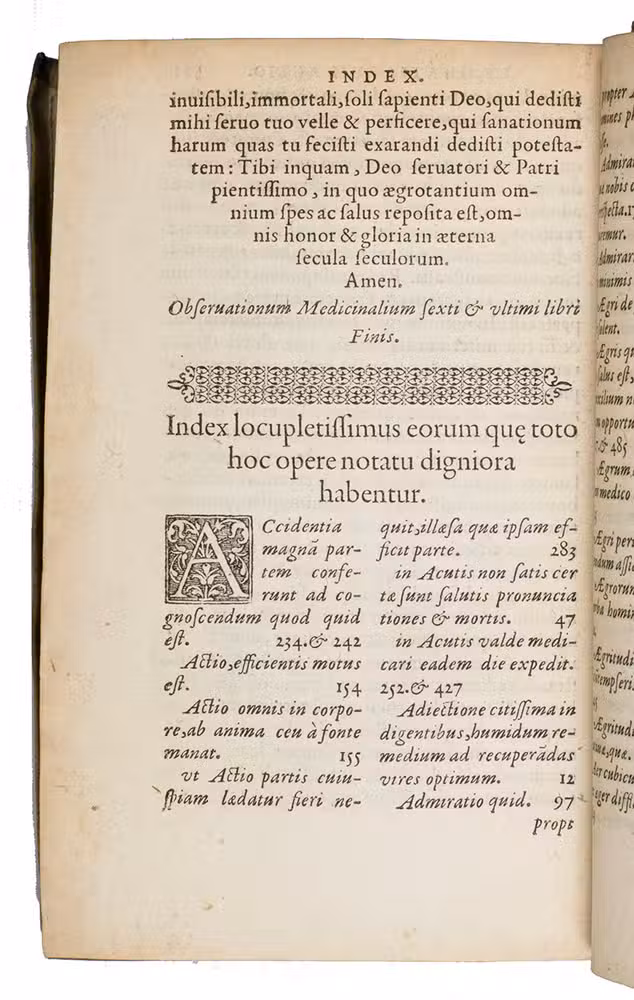 INDEX.
inuiſibili,immortali,ſoli ſapienti Deo,qui dediſti
mihi ſeruo tuo velle & perficere,qui ſanationum
harum quas tu feciſti exarandi dediſti poteſta-
tem: Tibi inquam, Deo ſeruatori & Patri
pientiſſimo, in quo ægrotantium om-
nium ſpes ac ſalus repoſita eſt,om-
nis honor & gloria in æterna
ſecula ſeculorum.
Amen.
Obſeruationum Medicinalium ſexti & vltimi libri
Finis.
Index locupletiſſimus eorum quę toto
hoc opere notatu digniora
habentur.
ACcidentia
magnā par-
tem confe-
runt ad co-
gnoſcendum quod quid
eſt. 234.& 242
Actio,efficientis motus
eſt. 154
Actio omnis in corpo-
re,ab anima ceu à fonte
manat. 155
vt Actio partis cuiu-
ſpiam lædatur fieri ne-
quit,illæſa quæ ipſam ef-
ficit parte. 283
in Acutis non ſatis cer
tæ ſunt ſalutis pronuncia
tiones & mortis. 47
in Acutis valde medi-
cari eadem die expedit.
252.& 427
Adiectione citiſſima in
digentibus,humidum re-
medium ad recuperādas
vires optimum. 12
Admiratio quid. 97
propt